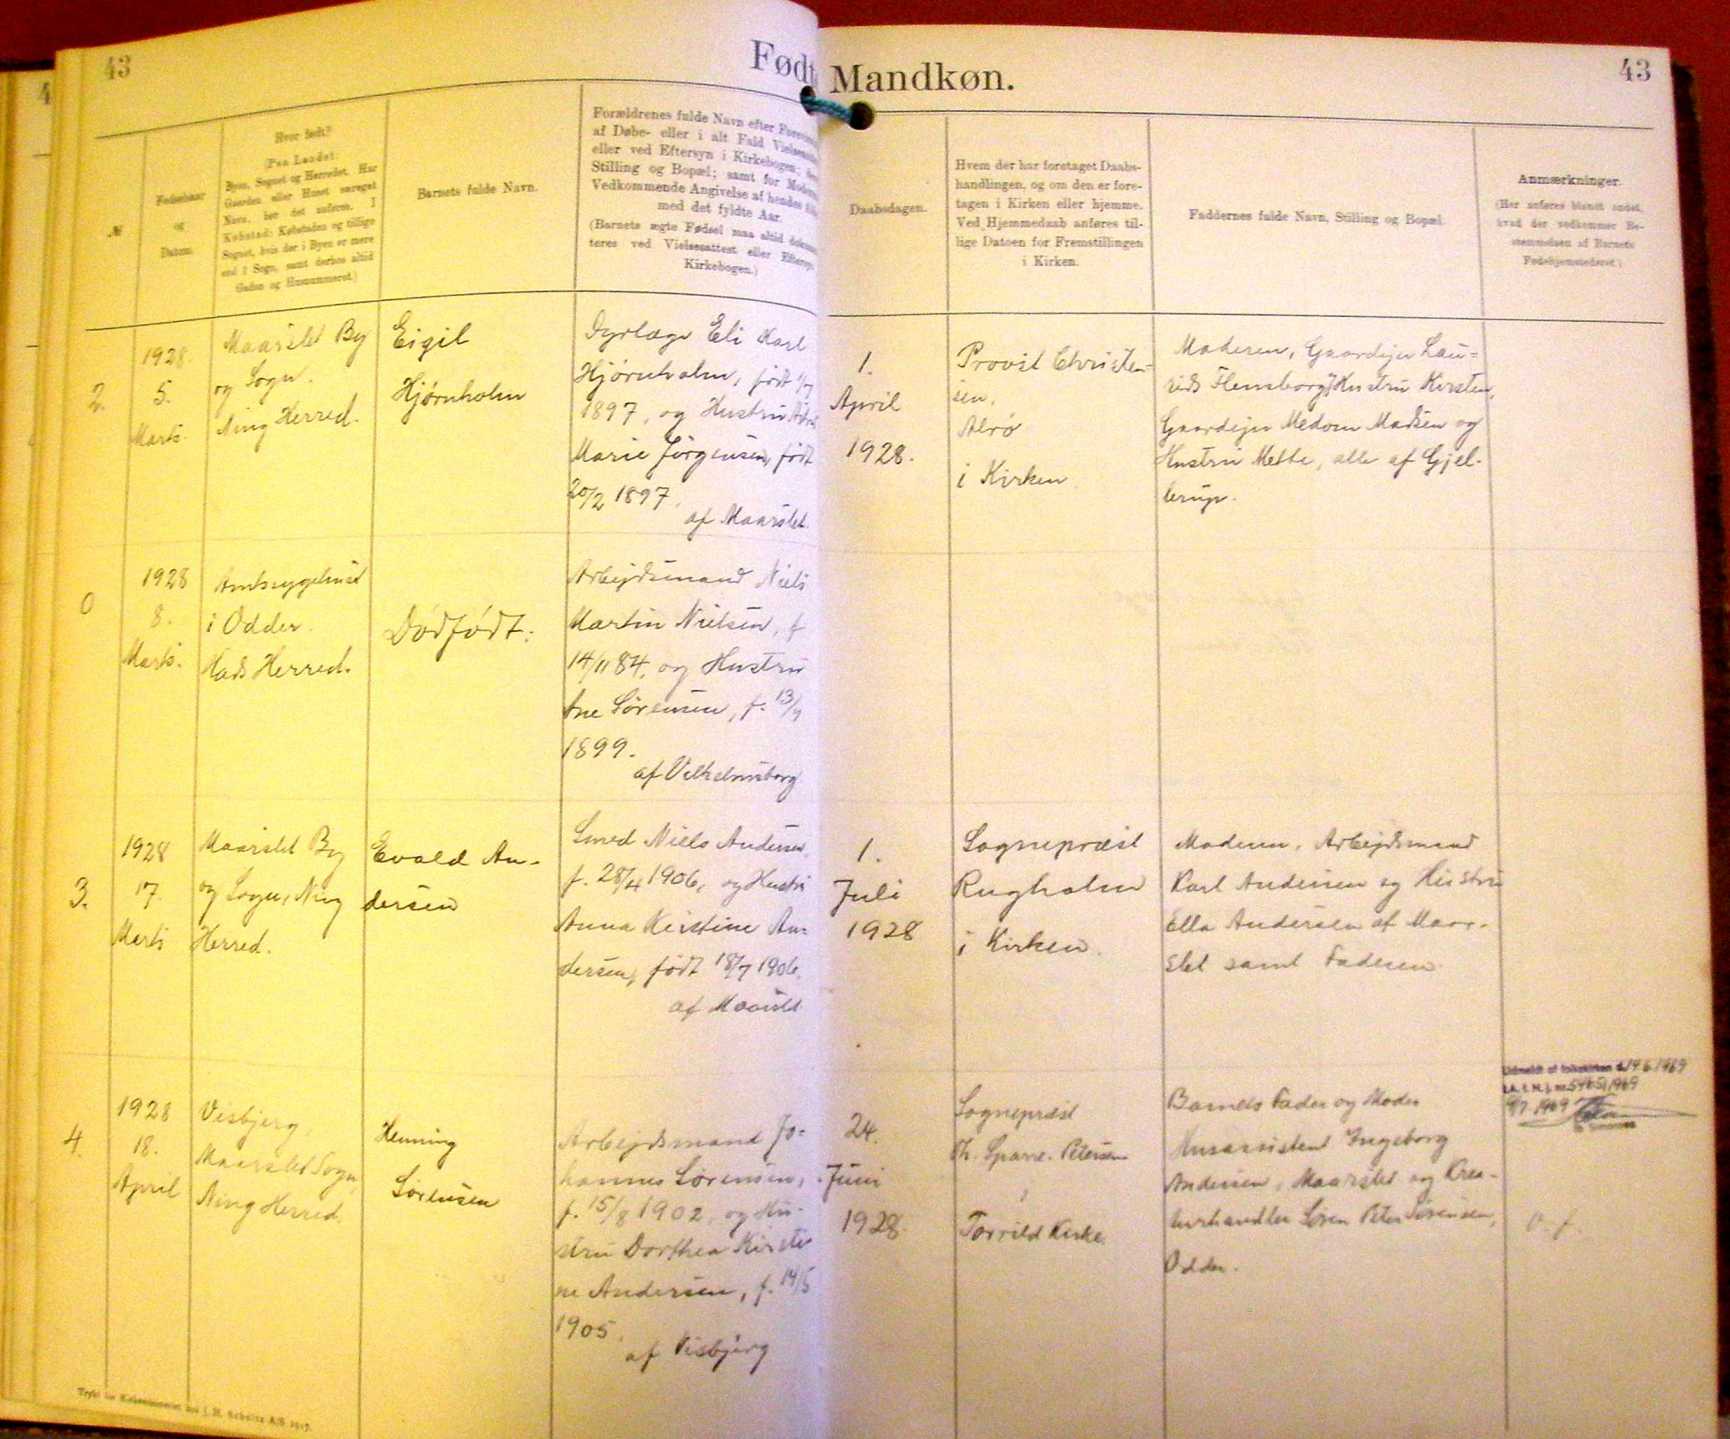 43
Født
Mandkøn.
43
№
Fødselsaar
og
Datum.
Hvor født?
(Paa Landet:
Byen, Sognet og Herredet. Har
Gaarden eller Huset særeget
Navn, bør det anføres. I
Købstad: Købstaden og tillige
Sognet, hvis der i Byen er mere
end 1 Sogn, samt derhos altid
Gaden og Husnummeret.)
Barnets fulde Navn.
Forældrenes fulde Navn efter
af Døbe- eller i alt Fald
eller ved Eftersyn i Kirkebogen;
Stilling og Bopæl; samt for
Vedkommende Angivelse af hendes
med det fyldte Aar.
(Barnets ægte Fødsel maa altid
teres ved Vielsesattest eller
Kirkebogen.)
Daabsdagen.
Hvem der har foretaget Daabs-
handlingen, og om den er fore-
tagen i Kirken eller hjemme.
Ved Hjemmedaab anføres til-
lige Datoen for Fremstillingen
i Kirken.
Faddernes fulde Navn, Stilling og Bopæl.
Anmærkninger.
(Her anføres blandt andet,
hvad der vedkommer Be-
stemmelsen af Barnets
Fødehjemstederet.)
2.
1928.
5.
Marts.
Maarslet By
og Sogn.
Ning Herred.
Eigil
Hjørnholm
Dyrlæge Eli Karl
Hjørnholm, født
1897, og Hustru
Marie Jørgensen, født
20/2 1897.
af Maarslet.
1.
April
1928.
Provst Christen-
sen,
Alrø
i Kirken
Moderen, Gaardejer Lau-
rids Flensborg, Hustru Kirsten,
Gaardejer Medom Madsen og
Hustru Mette, alle af Gjel-
lerup.
0
1928
8.
Marts.
Amtssygehuset
i Odder.
Hads Herred.
Dødfødt.
Arbejdsmand Niels
Martin Nielsen, f
14/11 84, og Hustru
Ane Sørensen, f. 13/7
1899.
af Vilhelmsborg
3.
1928
17.
Marts
Maarslet By
og Sogn, Ning
Herred.
Evald An-
dersen
Smed Niels Andersen,
f. 28/4 1906, og Hustru
Anna Kirstine An-
dersen, født 18/7 1906.
af Maarslet
1.
Juli
1928
Sognepræst
Rugholm
i Kirken.
Moderen, Arbejdsmand
Karl Andersen og Hustru
Ella Andersen af Maar-
slet samt Faderen
4.
1928
18.
April
Visbjerg,
Maarslet Sogn,
Ning Herred.
Henning
Sørensen
Arbejdsmand Jo-
hannes Sørensen,
f. 15/8 1902, og Hu-
stru Dorthea Kirsti-
ne Andersen, f. 14/5
1905.
af Visbjerg
24.
Juni
1928.
Sognepræst
Th. Sparre-Petersen
Torrild Kirke
Barnets Fader og Moder
Husassistent Ingeborg
Andersen, Maarslet og Krea-
turhandler Søren Peter Sørensen,
Odder.
Udmeldt af folkekirken d. 19.6.1969
1969
v. f.
Trykt for Kirkeministeriet hos J. H. Schultz A/S 1917.